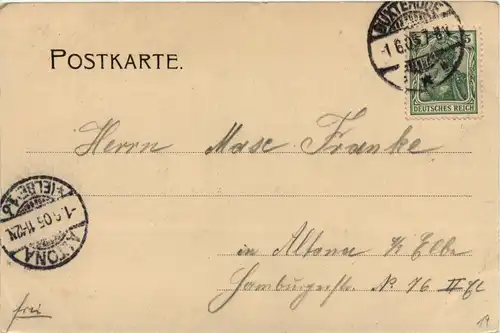 POSTKARTE.
BUXTEHUDE
-1.6.05.7-8V.
5
DEUTSCHES REICH
Herrn Max Franke
(ELBE)
-1.6.05.11-12N.
ALTONA
in Altona a/ Elbe
Hamburgerstr. No 76 II Et
frei